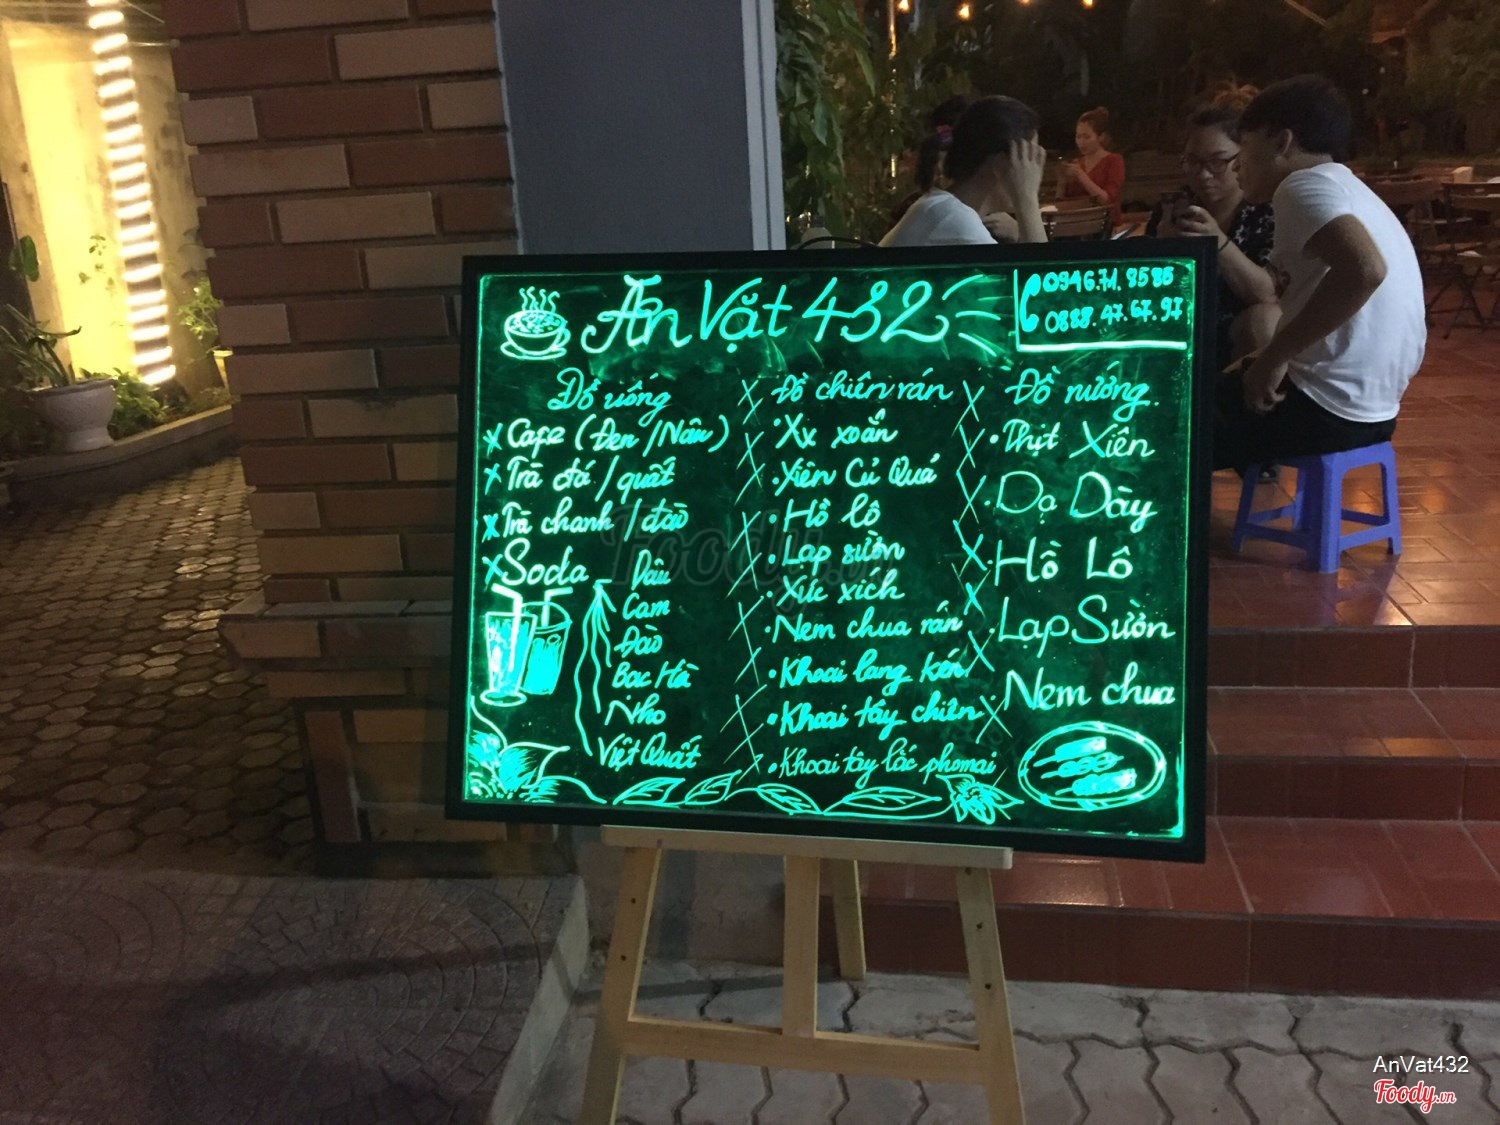 Ăn Vặt 432
0946.71.8585
0888.47.67.97
Đồ uống
x Cafe (Đen / Nâu)
x Trà đá / quất
x Trà chanh / đào
x Soda - Dâu
Cam
Đào
Bạc Hà
Nho
Việt Quất
Đồ chiên rán
. Xx xoắn
. Xiên Củ Quả
. Hồ lô
. Lạp sườn
. Xúc xích
. Nem chua rán
. Khoai lang kén
. Khoai tây chiên
. Khoai tây lắc phomai
Đồ nướng.
. Thịt Xiên
. Dạ Dày
. Hồ Lô
. Lạp Sườn
. Nem chua
Foody.vn
AnVat432
Foody.vn